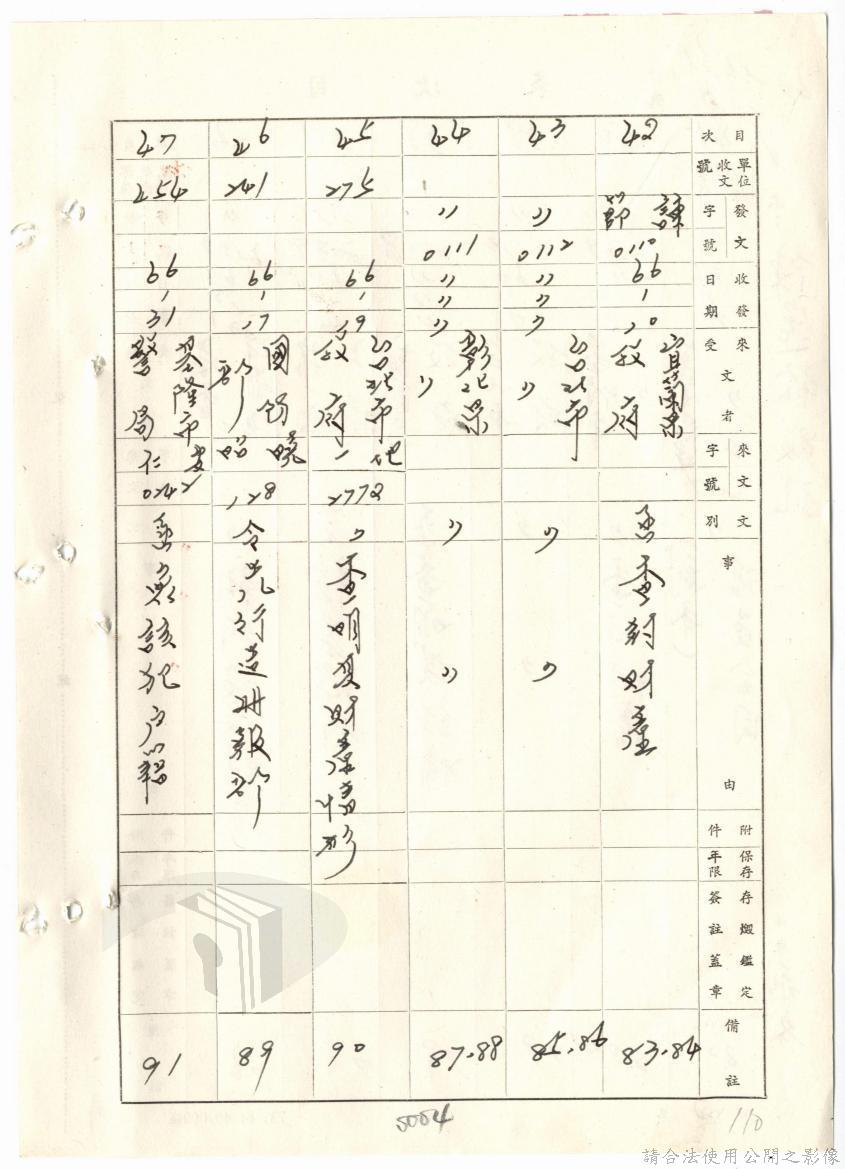 目次
單位收文號
發文字號
收發日期
來文受文者
來文字號
文別
事由
附件
保存年限
存燬鑑定簽註蓋章
備註
42
諫節
0110
66
1
10
宜蘭縣政府
查封財產
83.84
43
〃
0112
〃
〃
〃
台北市〃
〃
〃
85.86
44
〃
0111
〃
〃
〃
彰化縣〃
〃
〃
87.88
45
275
66
1
19
台北市政府
2772
〃
查明及財產情形
90
46
241
66
1
17
國防部
128
令
先行造冊報部
89
47
254
66
1
31
基隆市警局
0242
該犯戶籍
91
5004
110
請合法使用公開之影像